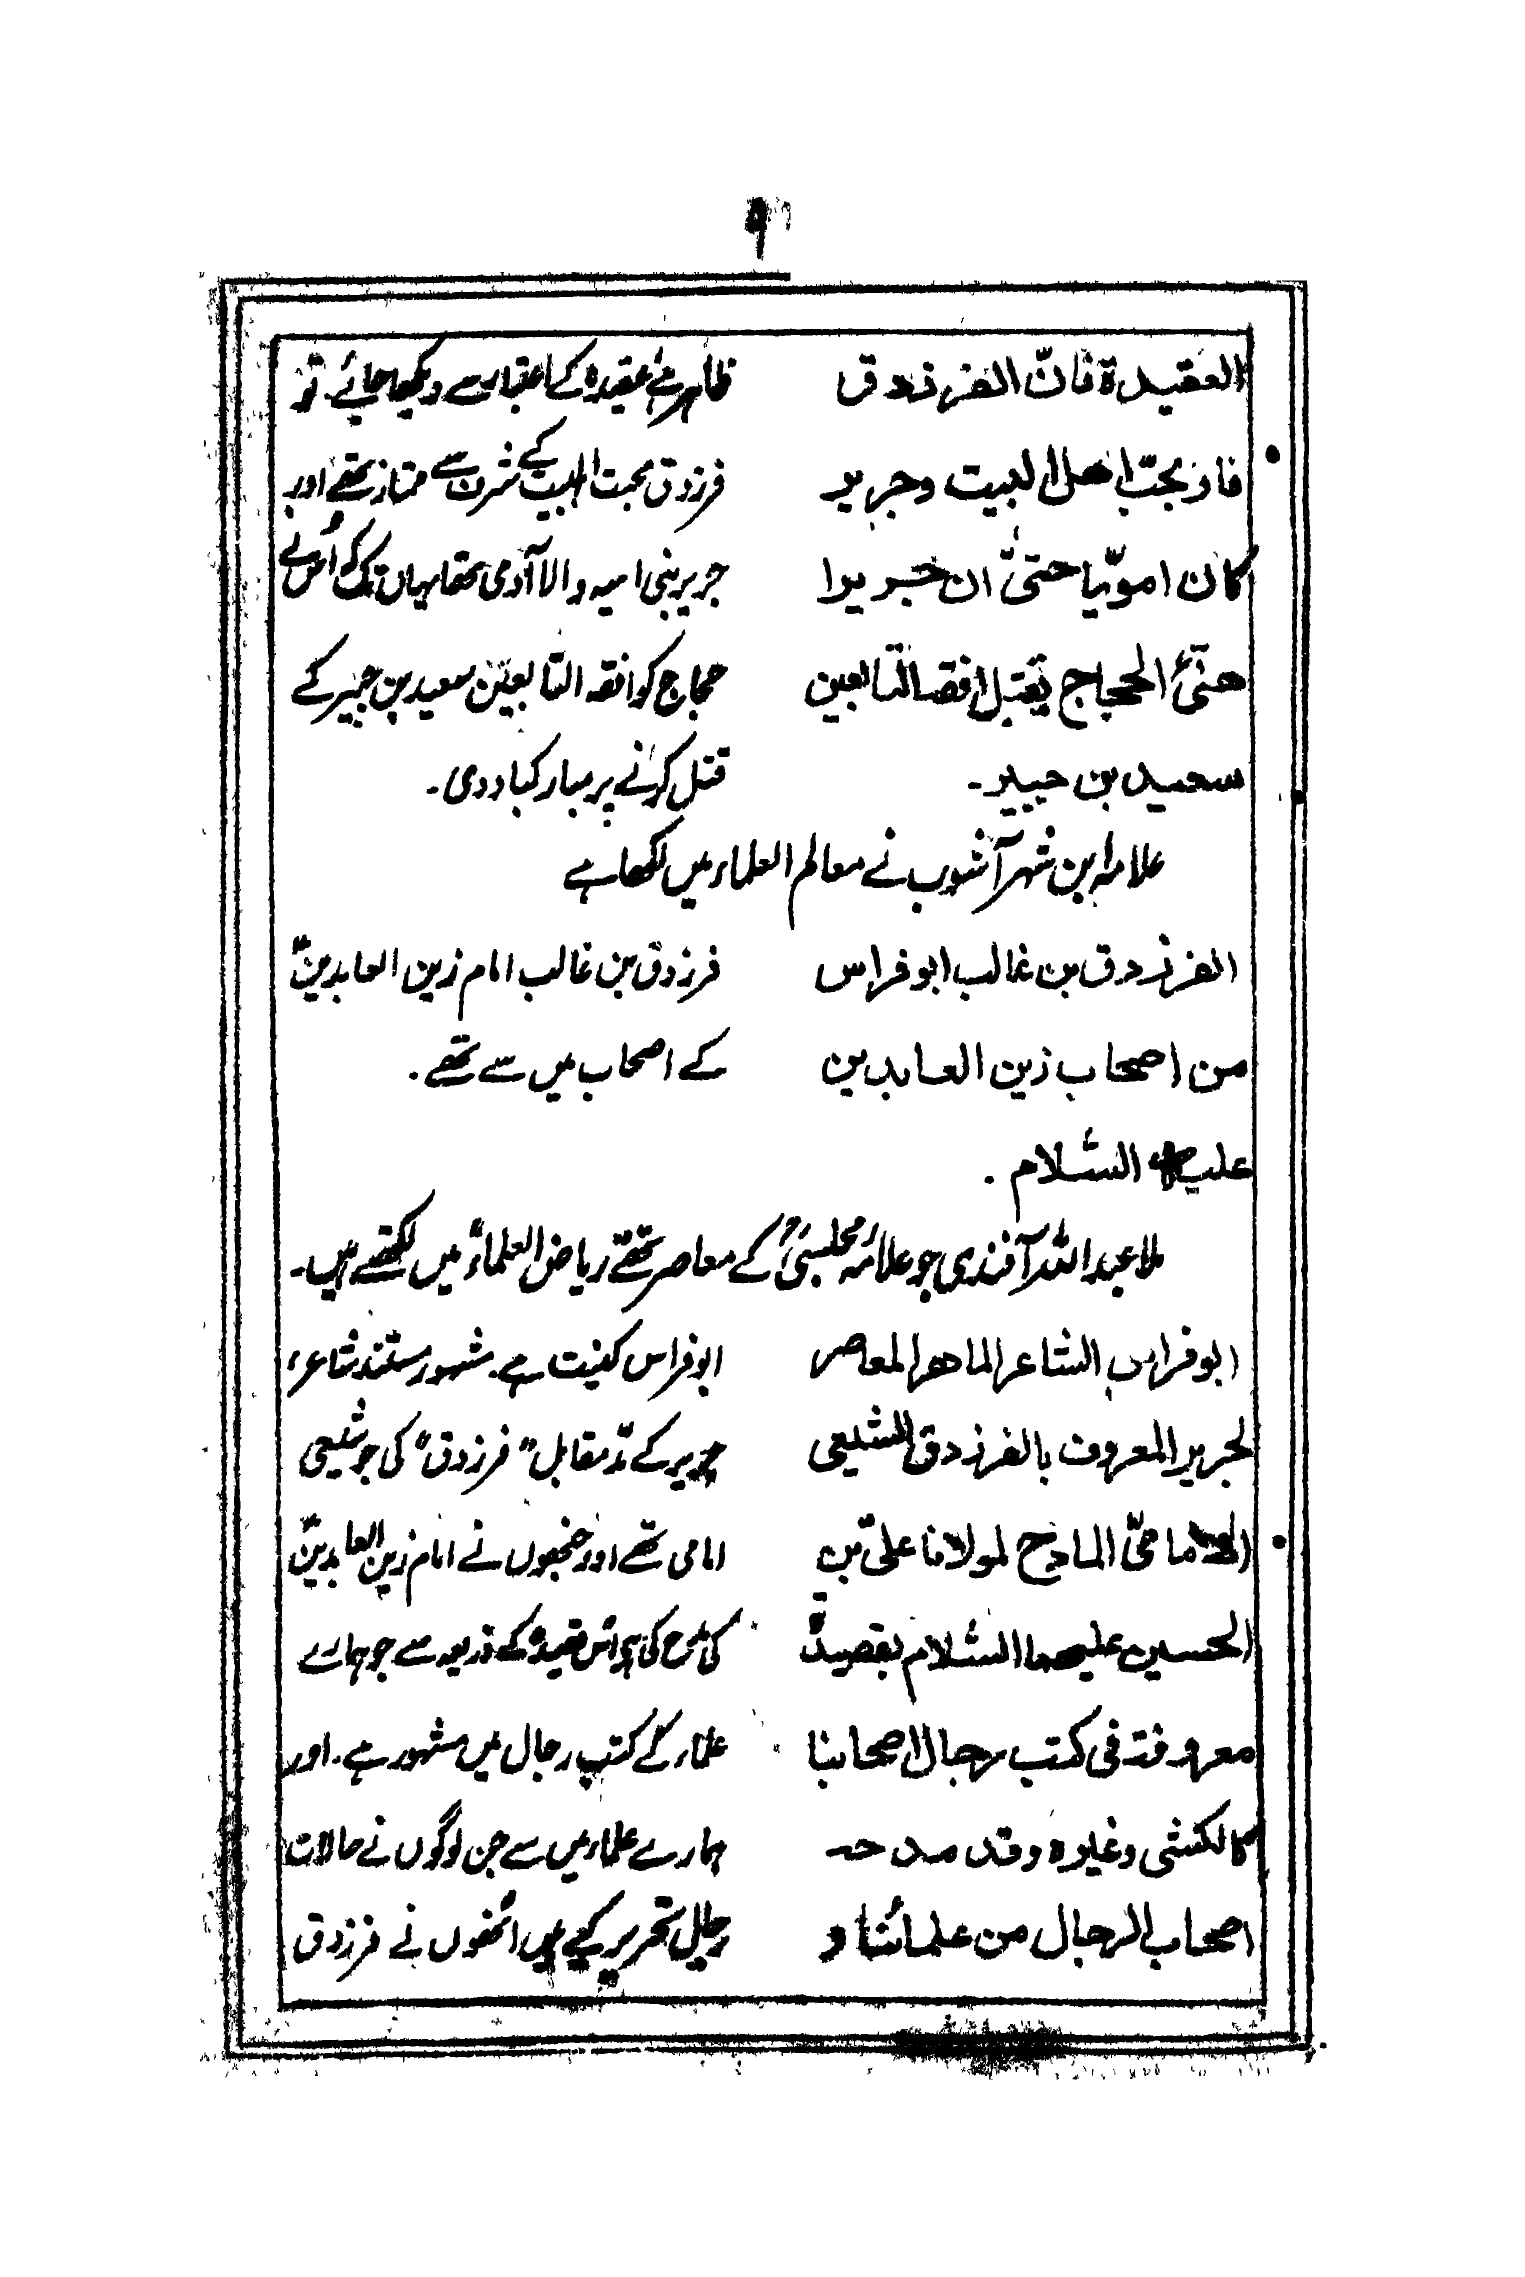 ۹
العقيدة فانّ الفرزدق
فاز بحبّ اهل البيت وجرير
كان امويّا حتىّ ان جريرا
هنّئ الحجاج بقتل افقه التابعين
سعيد بن جبير۔
ظاہر ہے عقیدہ کے اعتبار سے دیکھا جائے۔ تو
فرزدق محبت اہلبیت کے شرف سے ممتاز تھے اور
جریر بنی امیہ والا آدمی تھا یہاں تک کہ اُس نے
حجاج کو افقہ التابعین سعید بن جبیر کے
قتل کرنے پر مبارکباد دی۔
علامہ ابن شہر آشوب نے معالم العلماء میں لکھا ہے
الفرزدق بن غالب ابو فراس
من اصحاب زين العابدين
عليه السّلام .
فرزدق بن غالب امام زین العابدینؑ
کے اصحاب میں سے تھے۔
ملا عبد اللہ آفندی جو علامہ مجلسیؒ کے معاصر تھے ریاض العلماء میں لکھتے ہیں۔
ابو فراس الشاعر الماهر المعاصر
لجرير المعروف بالفرزدق الشيعى
الامامىّ المادح لمولانا علىّ بن
الحسين عليهما السّلام بقصيدة
معروفة فى كتب رجال اصحابنا
كالكشى وغيره وقد مدحه
اصحاب الرجال من علمائنا و
ابو فراس کنیت ہے۔ مشہور مستند شاعر،
جریر کے مدّ مقابل "فرزدق" کی جو شیعی
امامی تھے اور جنھوں نے امام زین العابدینؑ
کی مدح کی ہے اس قصیدہ کے ذریعہ سے جو ہمارے
علماء کے کتب رجال میں مشہور ہے۔ اور
ہمارے علماء میں سے جن لوگوں نے حالات
رجال تحریر کیے ہیں انھوں نے فرزدق